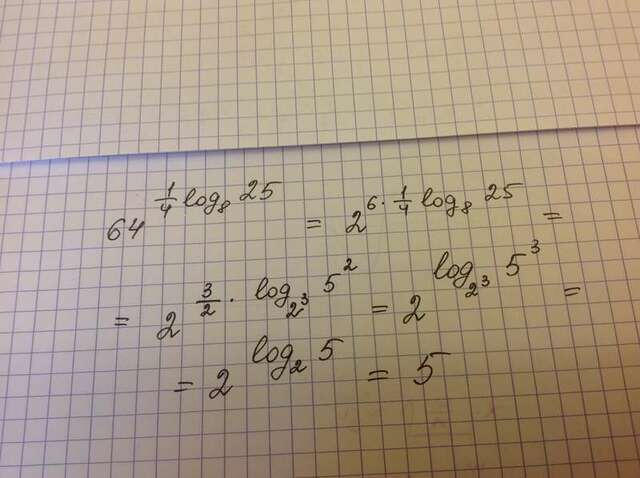 64^{\frac{1}{4} log_8 25} = 2^{6 · \frac{1}{4} log_8 25} =
= 2^{\frac{3}{2} · log_{2^3} 5^2} = 2^{log_{2^3} 5^3} =
= 2^{log_2 5} = 5